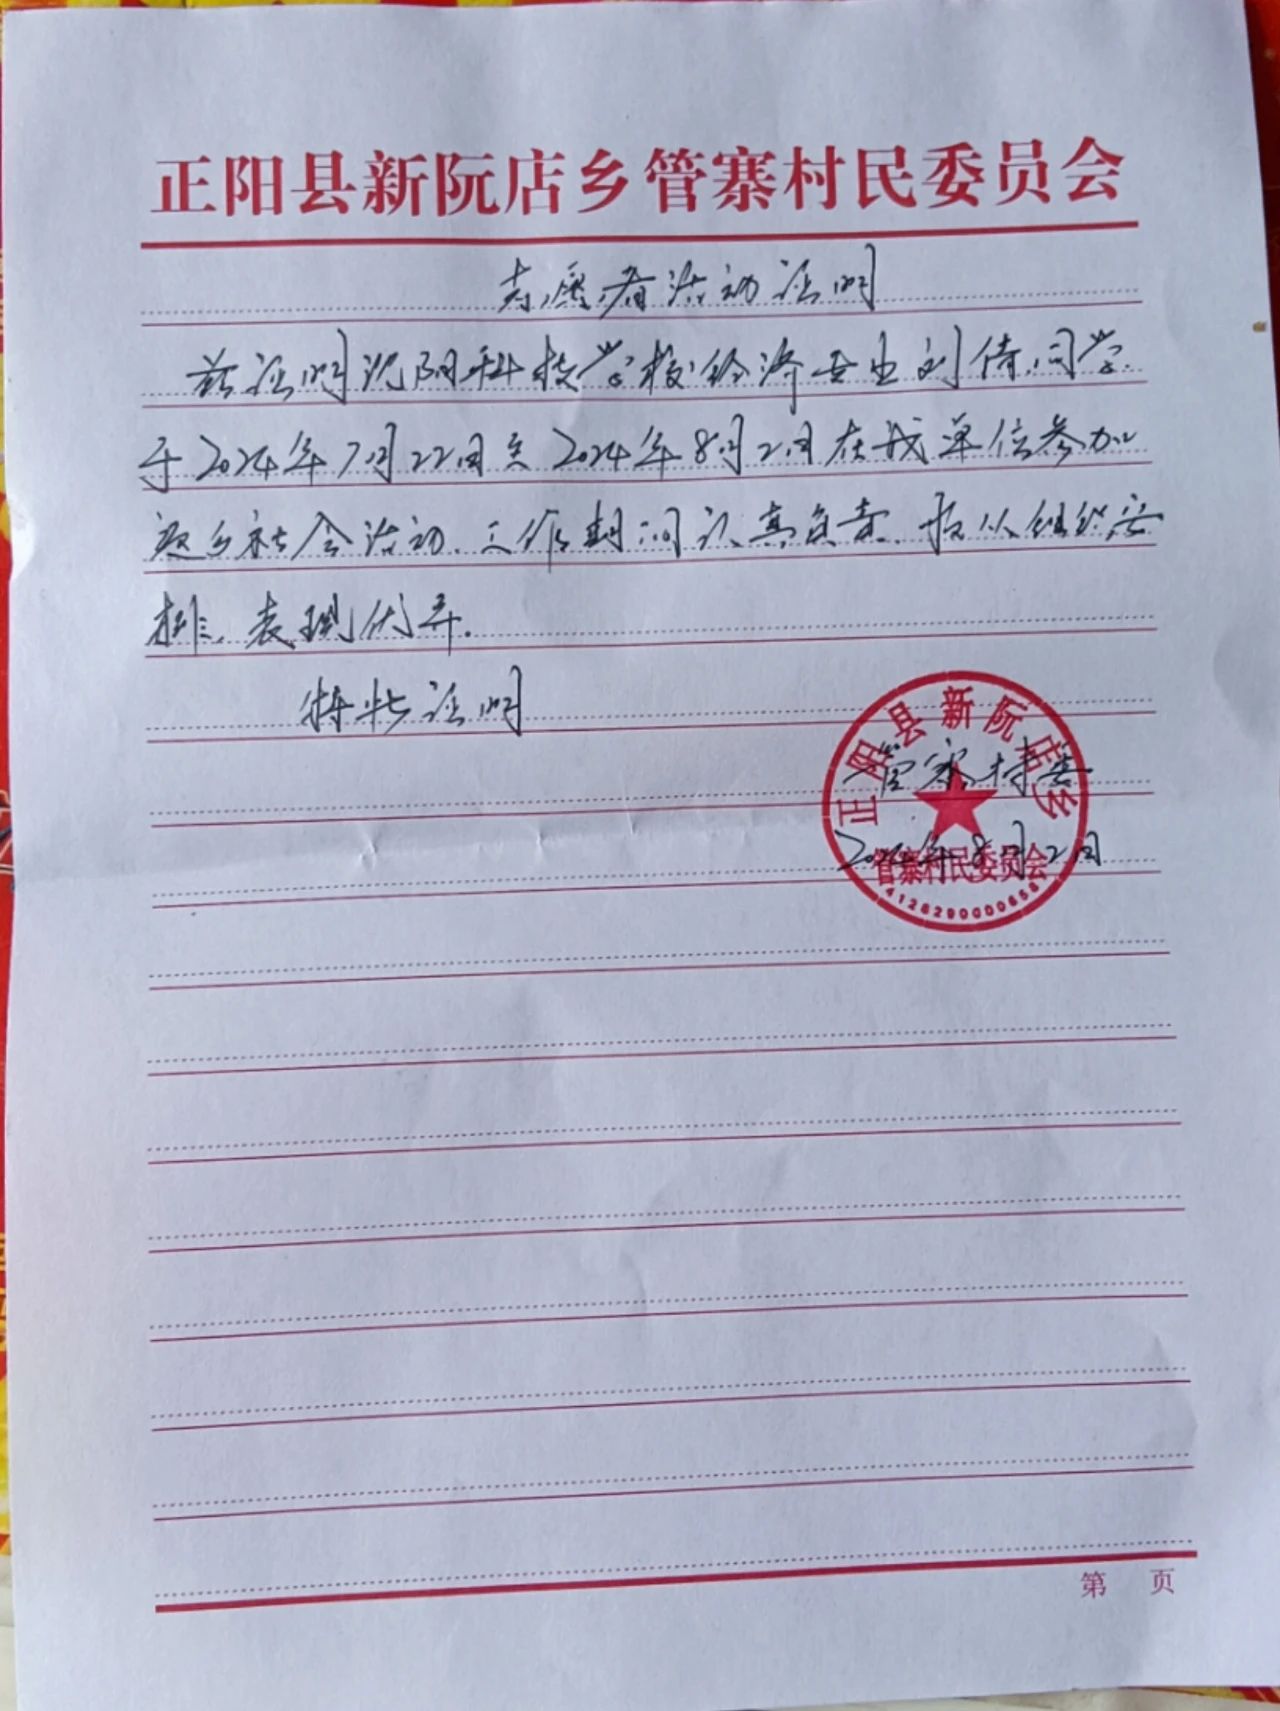 正阳县新阮店乡管寨村民委员会
志愿者活动证明
兹证明沈阳科技学校经济专业刘倩同学.
于2024年7月22日至2024年8月2日在我单位参加
返乡社会活动.工作期间认真负责.服从组织安
排.表现优异.
特此证明
正阳县新阮店乡
管寨村委
2024年8月2日
管寨村民委员会
第 页